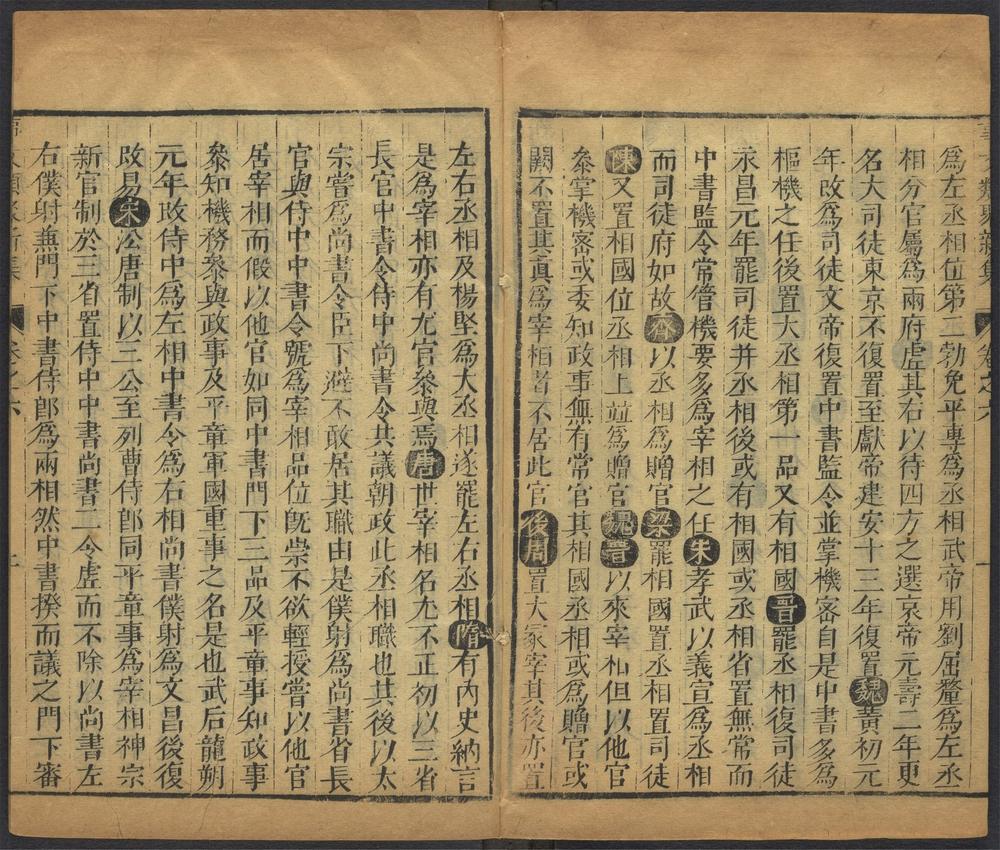 爲左丞相位第二勃免平專爲丞相武帝用劉屈氂爲左丞
相分官屬爲兩府虛其右以待四方之選哀帝元壽二年更
名大司徒東京不復置至獻帝建安十三年復置魏黃初元
年改爲司徒文帝復置中書監令並掌機宻自是中書多爲
樞機之任後置大丞相第一品又有相國晉罷丞相復司徒
永昌元年罷司徒并丞相後或有相國或丞相省置無常而
中書監令常管機要多爲宰相之任朱孝武以義宣爲丞相
而司徒府如故齊以丞相爲贈官梁罷相國置丞相置司徒
陳又置相國位丞相上並爲贈官魏晋以來宰相但以他官
叅掌機宻或委知政事無有常官其相國丞相或爲贈官或
闕不置其眞爲宰相者不居此官後周置大冢宰其後亦置
左右丞相及楊堅爲大丞相遂罷左右丞相隋有內史納言
是爲宰相亦有尢官叅與焉唐世宰相名尢不正初以三省
長官中書令侍中尚書令共議朝政此丞相職也其後以太
宗嘗爲尚書令臣下避不敢居其職由是僕射爲尚書省長
官與侍中中書令號爲宰相品位旣崇不欲輕授嘗以他官
居宰相而假以他官如同中書門下三品及平章事知政事
叅知機務叅與政事及平章軍國重事之名是也武后龍朔
元年攺侍中爲左相中書令爲右相尚書僕射爲文昌後復
攺易宋㳂唐制以三公至列曹侍郎同平章事爲宰相神宗
新官制於三省置侍中中書尚書二令虛而不除以尚書左
右僕射兼門下中書侍郎爲兩相然中書揆而議之門下審